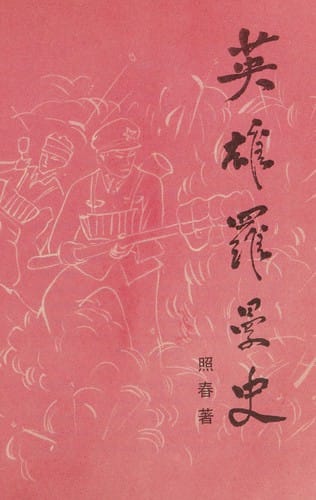 英雄羅曼史
照春著